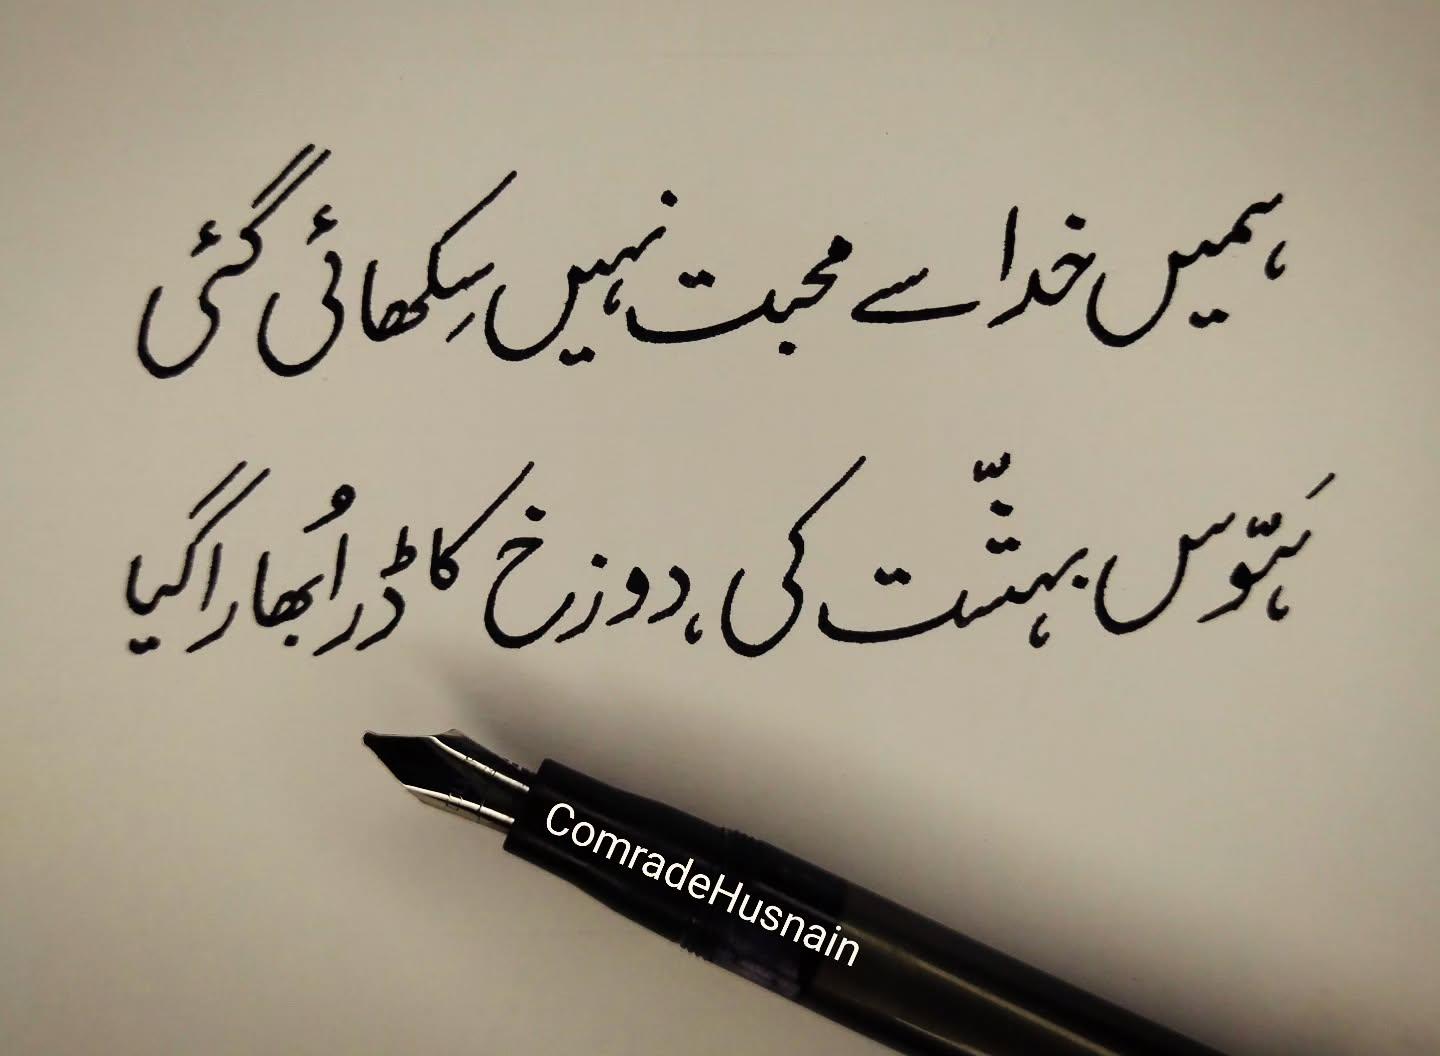 ہمیں خدا سے محبت نہیں سِکھائی گئی
ہَوّس بہشّت کی، دوزخ کا ڈر اُبھارا گیا
ComradeHusnain